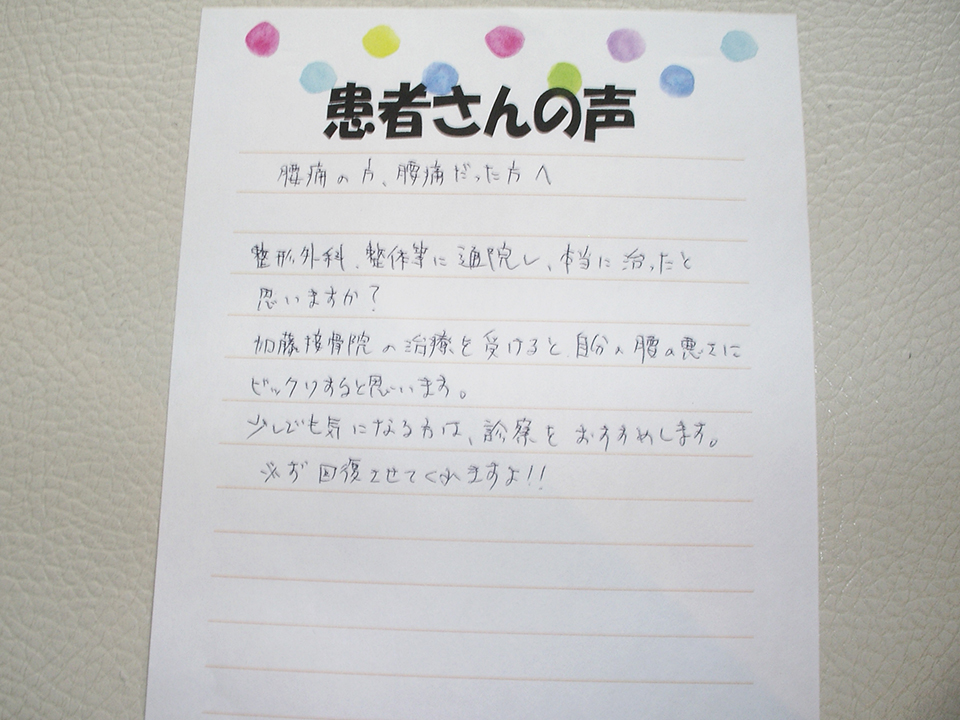 患者さんの声
腰痛の方、腰痛だった方へ
整形外科、整体等に通院し、本当に治ったと
思いますか?
加藤接骨院の治療を受けると、自分の腰の悪さに
ビックリすると思います。
少しでも気になる方は、診察をおすすめします。
必ず回復させてくれますよ!!